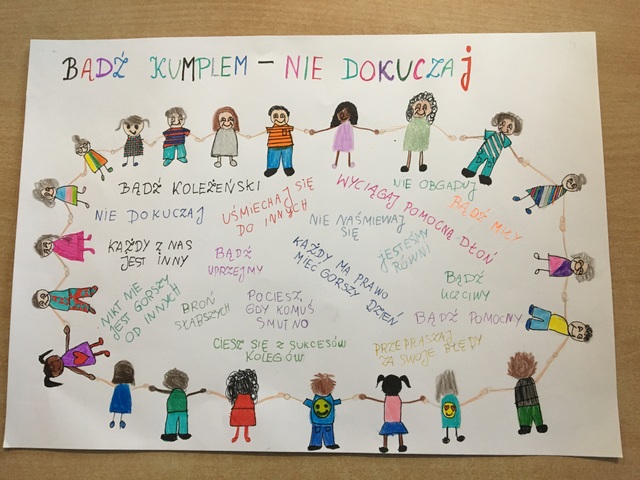 BĄDŹ KUMPLEM – NIE DOKUCZAJ
BĄDŹ KOLEŻEŃSKI
NIE DOKUCZAJ
UŚMIECHAJ SIĘ
DO INNYCH
WYCIĄGAJ POMOCNĄ DŁOŃ
NIE OBGADUJ
BĄDŹ MIŁY
KAŻDY Z NAS
JEST INNY
BĄDŹ
UPRZEJMY
NIE NAŚMIEWAJ
SIĘ
JESTEŚMY
RÓWNI
KAŻDY MA PRAWO
MIEĆ GORSZY DZIEŃ
BĄDŹ
UCZCIWY
NIKT NIE
JEST GORSZY
OD INNYCH
BROŃ
SŁABSZYCH
POCIESZ
GDY KOMUŚ
SMUTNO
BĄDŹ POMOCNY
CIESZ SIĘ Z SUKCESÓW
KOLEGÓW
PRZEPRASZAJ
ZA SWOJE BŁĘDY